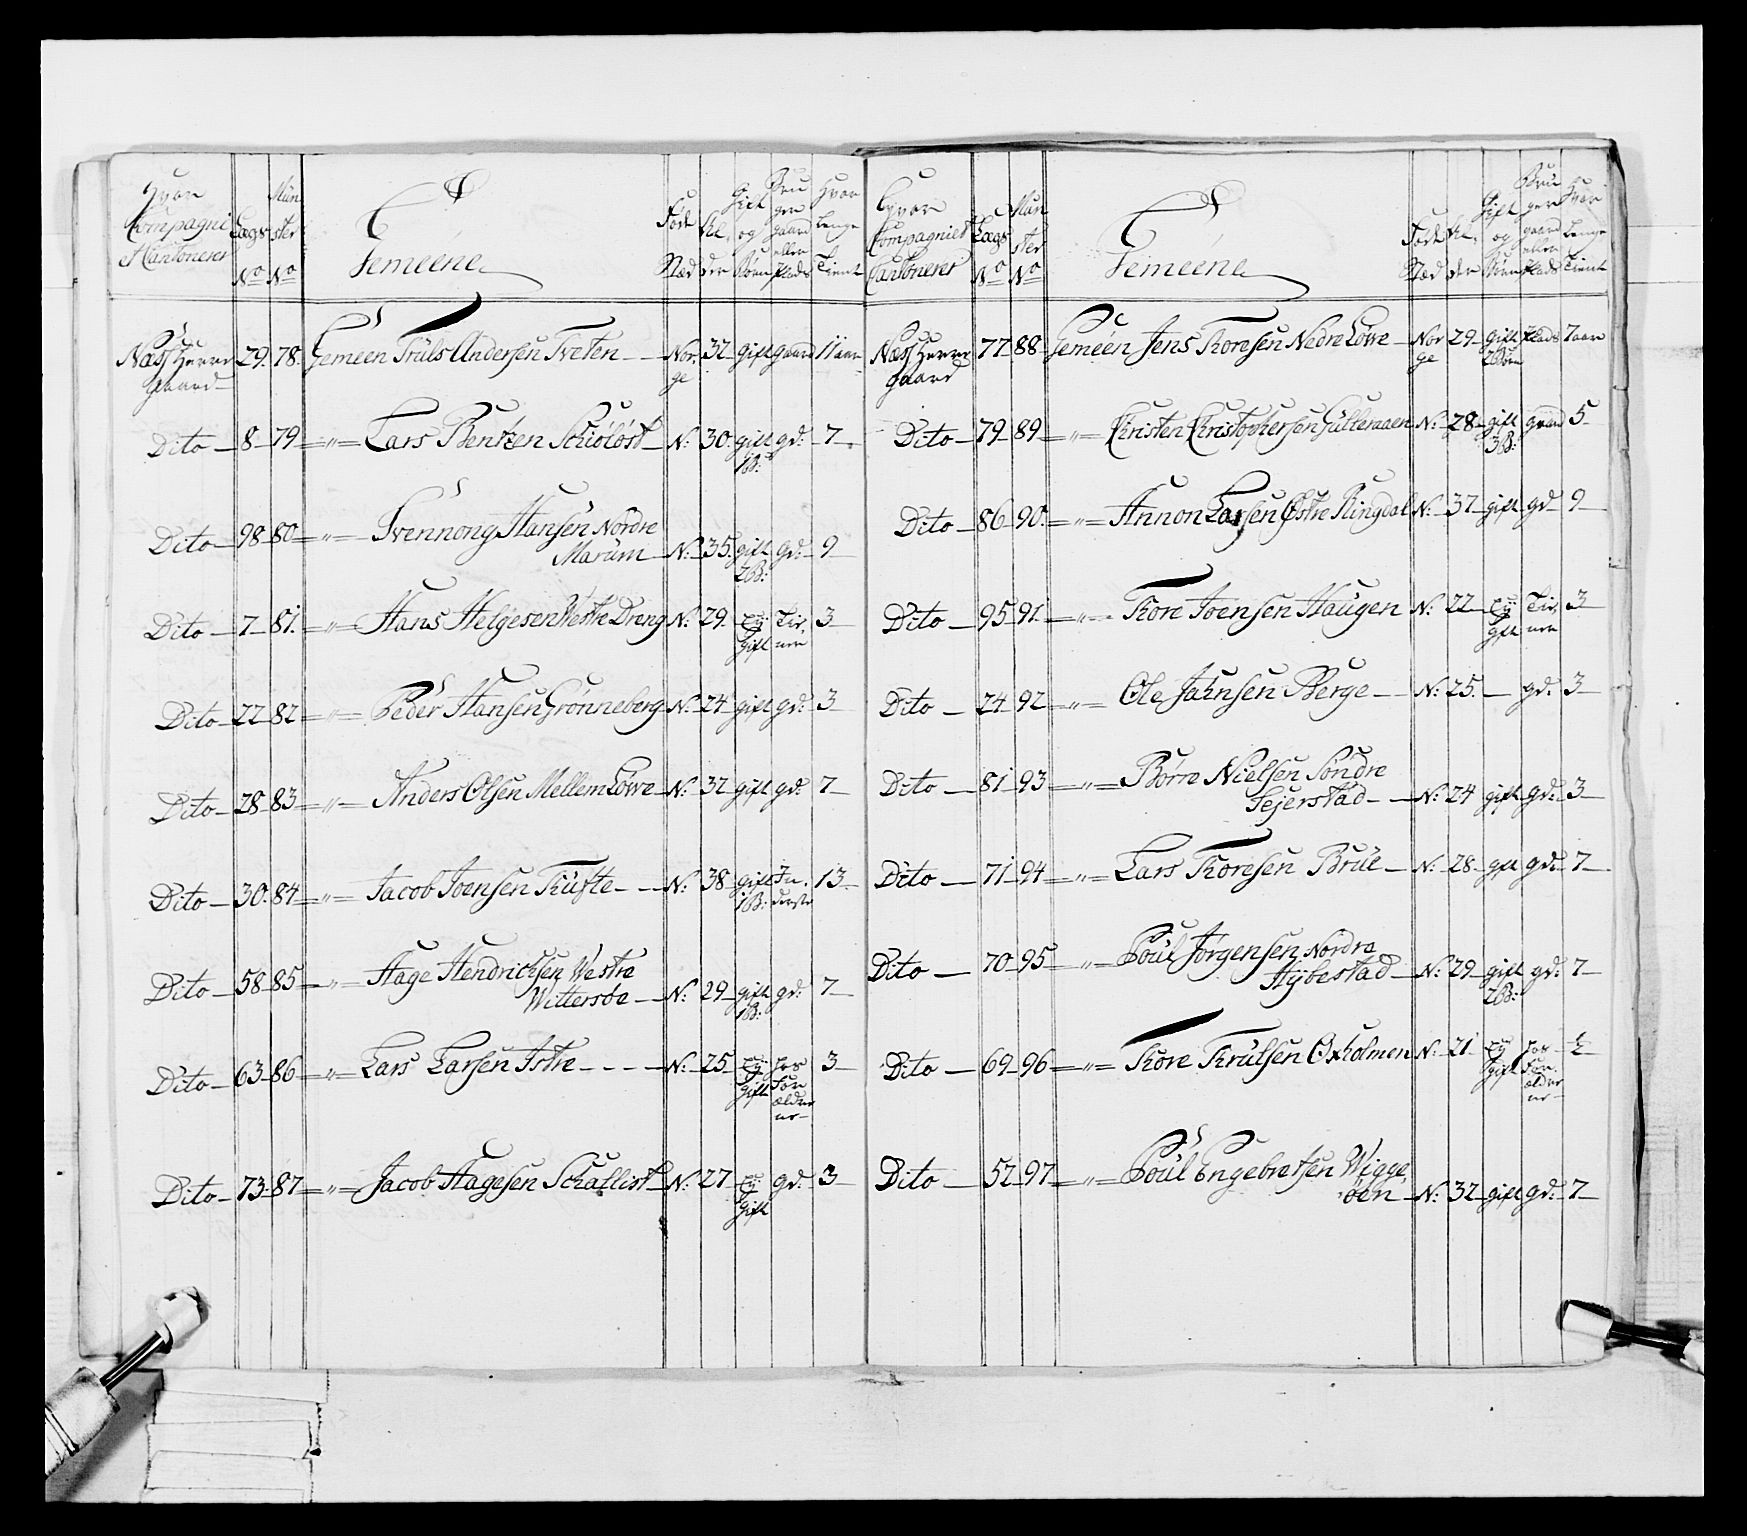 Hvor Compagniet Cantonerer | Lægs No | Mün ster No | Gemeene | Föde Stæd | Al, der | Gift og Börn | Bru ger gaard eller Plads | Hvor Lenge Tient
Næss Herre gaard | 29. | 78. | Gemeen Truls Andersen Tveten | Nor ge | 32 | gift | gaard | 11 aar
Dito | 8 | 79 | Lars Bentzen Schiölöst | N: | 30. | gift 1B: | gd: | 7
Dito | 98 | 80 | Svennong Hansen Nordre
Marum | N: | 35. | gift 2B: | gd: | 9
Dito | 7 | 81. | Hans Helgesen Westre Dreng | N: | 29. | Ey gift | | 3
Dito | 22 | 82 | Peder Hansen Grönneberg | N: | 24 | gift | gd: | 3
Dito | 28 | 83 | Anders Olsen Mellem Löwe | N: | 32 | gift | gd: | 7
Dito | 30. | 84 | Jacob Joensen Tufte | N: | 38 | gift 1B: | In, derste | 13
Dito | 58 | 85 | Hage Hendrichsen Westre
Wittersöe | N: | 29 | gift 1B: | gd: | 7
Dito | 63 | 86 | Lars Larsen Istre | N: | 25 | Ey gift | hos For ældre ne | 3
Dito | 73 | 87 | Jacob Hagesen Schallist | N: | 27 | Ey gift | gd: | 3
Hvor Compagniet Cantonerer | Lægs No | Mün ster No | Gemeene | Föde Stæd | Al, der | Gift og Börn | Bru ger gaard eller Plads | Hvor Lenge Tient
Næss Herre gaard | 77 | 88 | Gemeen Jens Thoresen Nedre Löwe | Nor ge | 29 | gift 2 Börn | Plads | 7 aar
Dito | 79 | 89 | Christen Christophersen Gulteraaen | N: | 28 | gift 3B: | gaard | 5
Dito | 86 | 90. | Annon Larsen Østre Ringdal | N: | 37 | gift | gd | 9
Dito | 95 | 91 | Thore Joensen Haugen | N: | 22 | Ey gift | | 3
Dito | 24 | 92 | Ole Jahnsen Berge | N: | 25. | — | gd: | 3
Dito | 81 | 93 | Börre Nielsen Söndre
Sejerstad | N: | 24 | gift | gd: | 3
Dito | 71 | 94 | Lars Thoresen Brue | N: | 28 | gift | gd: | 7
Dito | 70 | 95 | Poul Jörgensen Nordre
Hÿbestad | N: | 29 | gift 2B: | gd: | 7
Dito | 69 | 96 | Thore Trulsen Oxholmen | N: | 21 | Ey gift | hos For, ældre ne | ½
Dito | 52 | 97 | Poul Engebretsen Wigge,
öen | N: | 32 | gift | gd: | 7